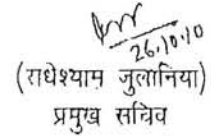 26.10.10
(राधेश्याम जुलानिया)
प्रमुख सचिव